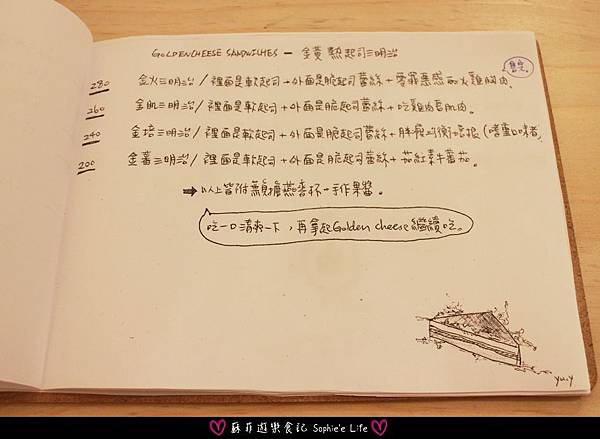 GOLDENCHEESE SANDWICHES — 金黃熱起司三明治
280 金火三明治/裡面是軟起司+外面是脆起司蕾絲+零罪惡感 火雞胸肉。
售完
260 金肌三明治/裡面是軟起司+外面是脆起司蕾絲+吃雞肉長肌肉。
240 金培三明治/裡面是軟起司+外面是脆起司蕾絲+胖瘦均衡培根(嗜重口味者)
200 金蕃三明治/裡面是軟起司+外面是脆起司蕾絲+茄紅素牛蕃茄。
➡ 以上皆附無負擔燕麥杯+手作果醬。
吃一口清爽一下,再拿起Golden cheese繼續吃。
yuiy
蘇菲遊樂食記 Sophie'e Life